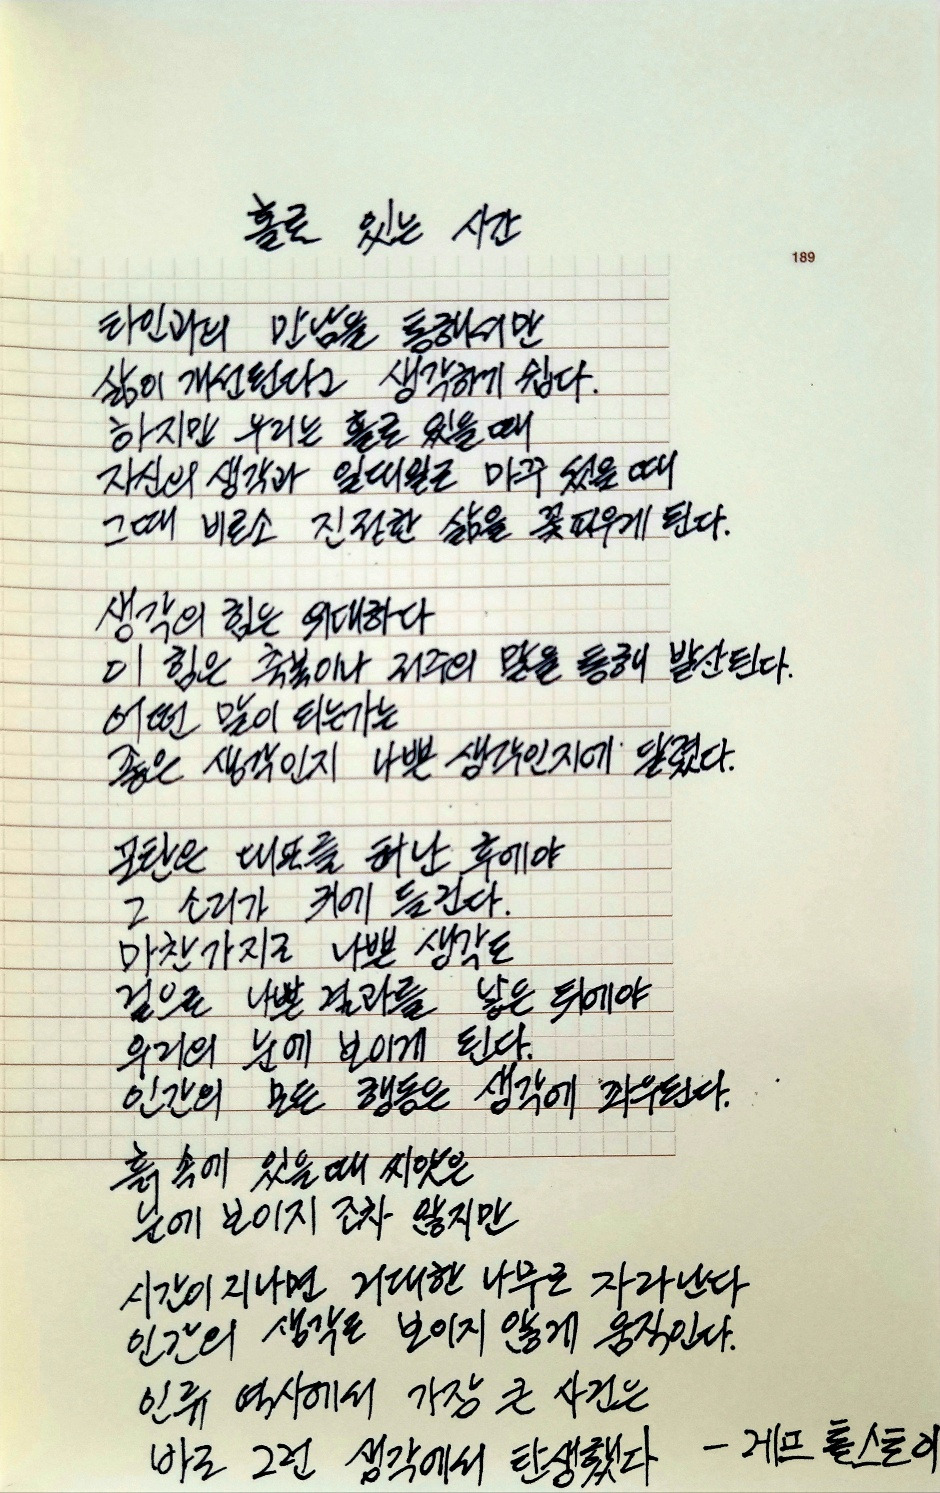 홀로 있는 시간
189
타인과의 만남을 통해서만
삶이 개선된다고 생각하기 쉽다.
하지만 우리는 홀로 있을 때
자신의 생각과 일대일로 마주 섰을 때
그때 비로소 진정한 삶을 꽃피우게 된다.
생각의 힘은 위대하다
이 힘은 축복이나 저주의 말을 통해 발산된다.
어떤 말이 되는가는
좋은 생각인지 나쁜 생각인지에 달렸다.
포탄은 대포를 떠난 후에야
그 소리가 귀에 들린다.
마찬가지로 나쁜 생각도
겉으로 나쁜 결과를 낳은 뒤에야
우리의 눈에 보이게 된다.
인간의 모든 행동은 생각에 좌우된다.
흙 속에 있을 때 씨앗은
눈에 보이지 조차 않지만
시간이 지나면 거대한 나무로 자라난다
인간의 생각도 보이지 않게 움직인다.
인류 역사에서 가장 큰 사건은
바로 그런 생각에서 탄생했다 - 레프 톨스토이